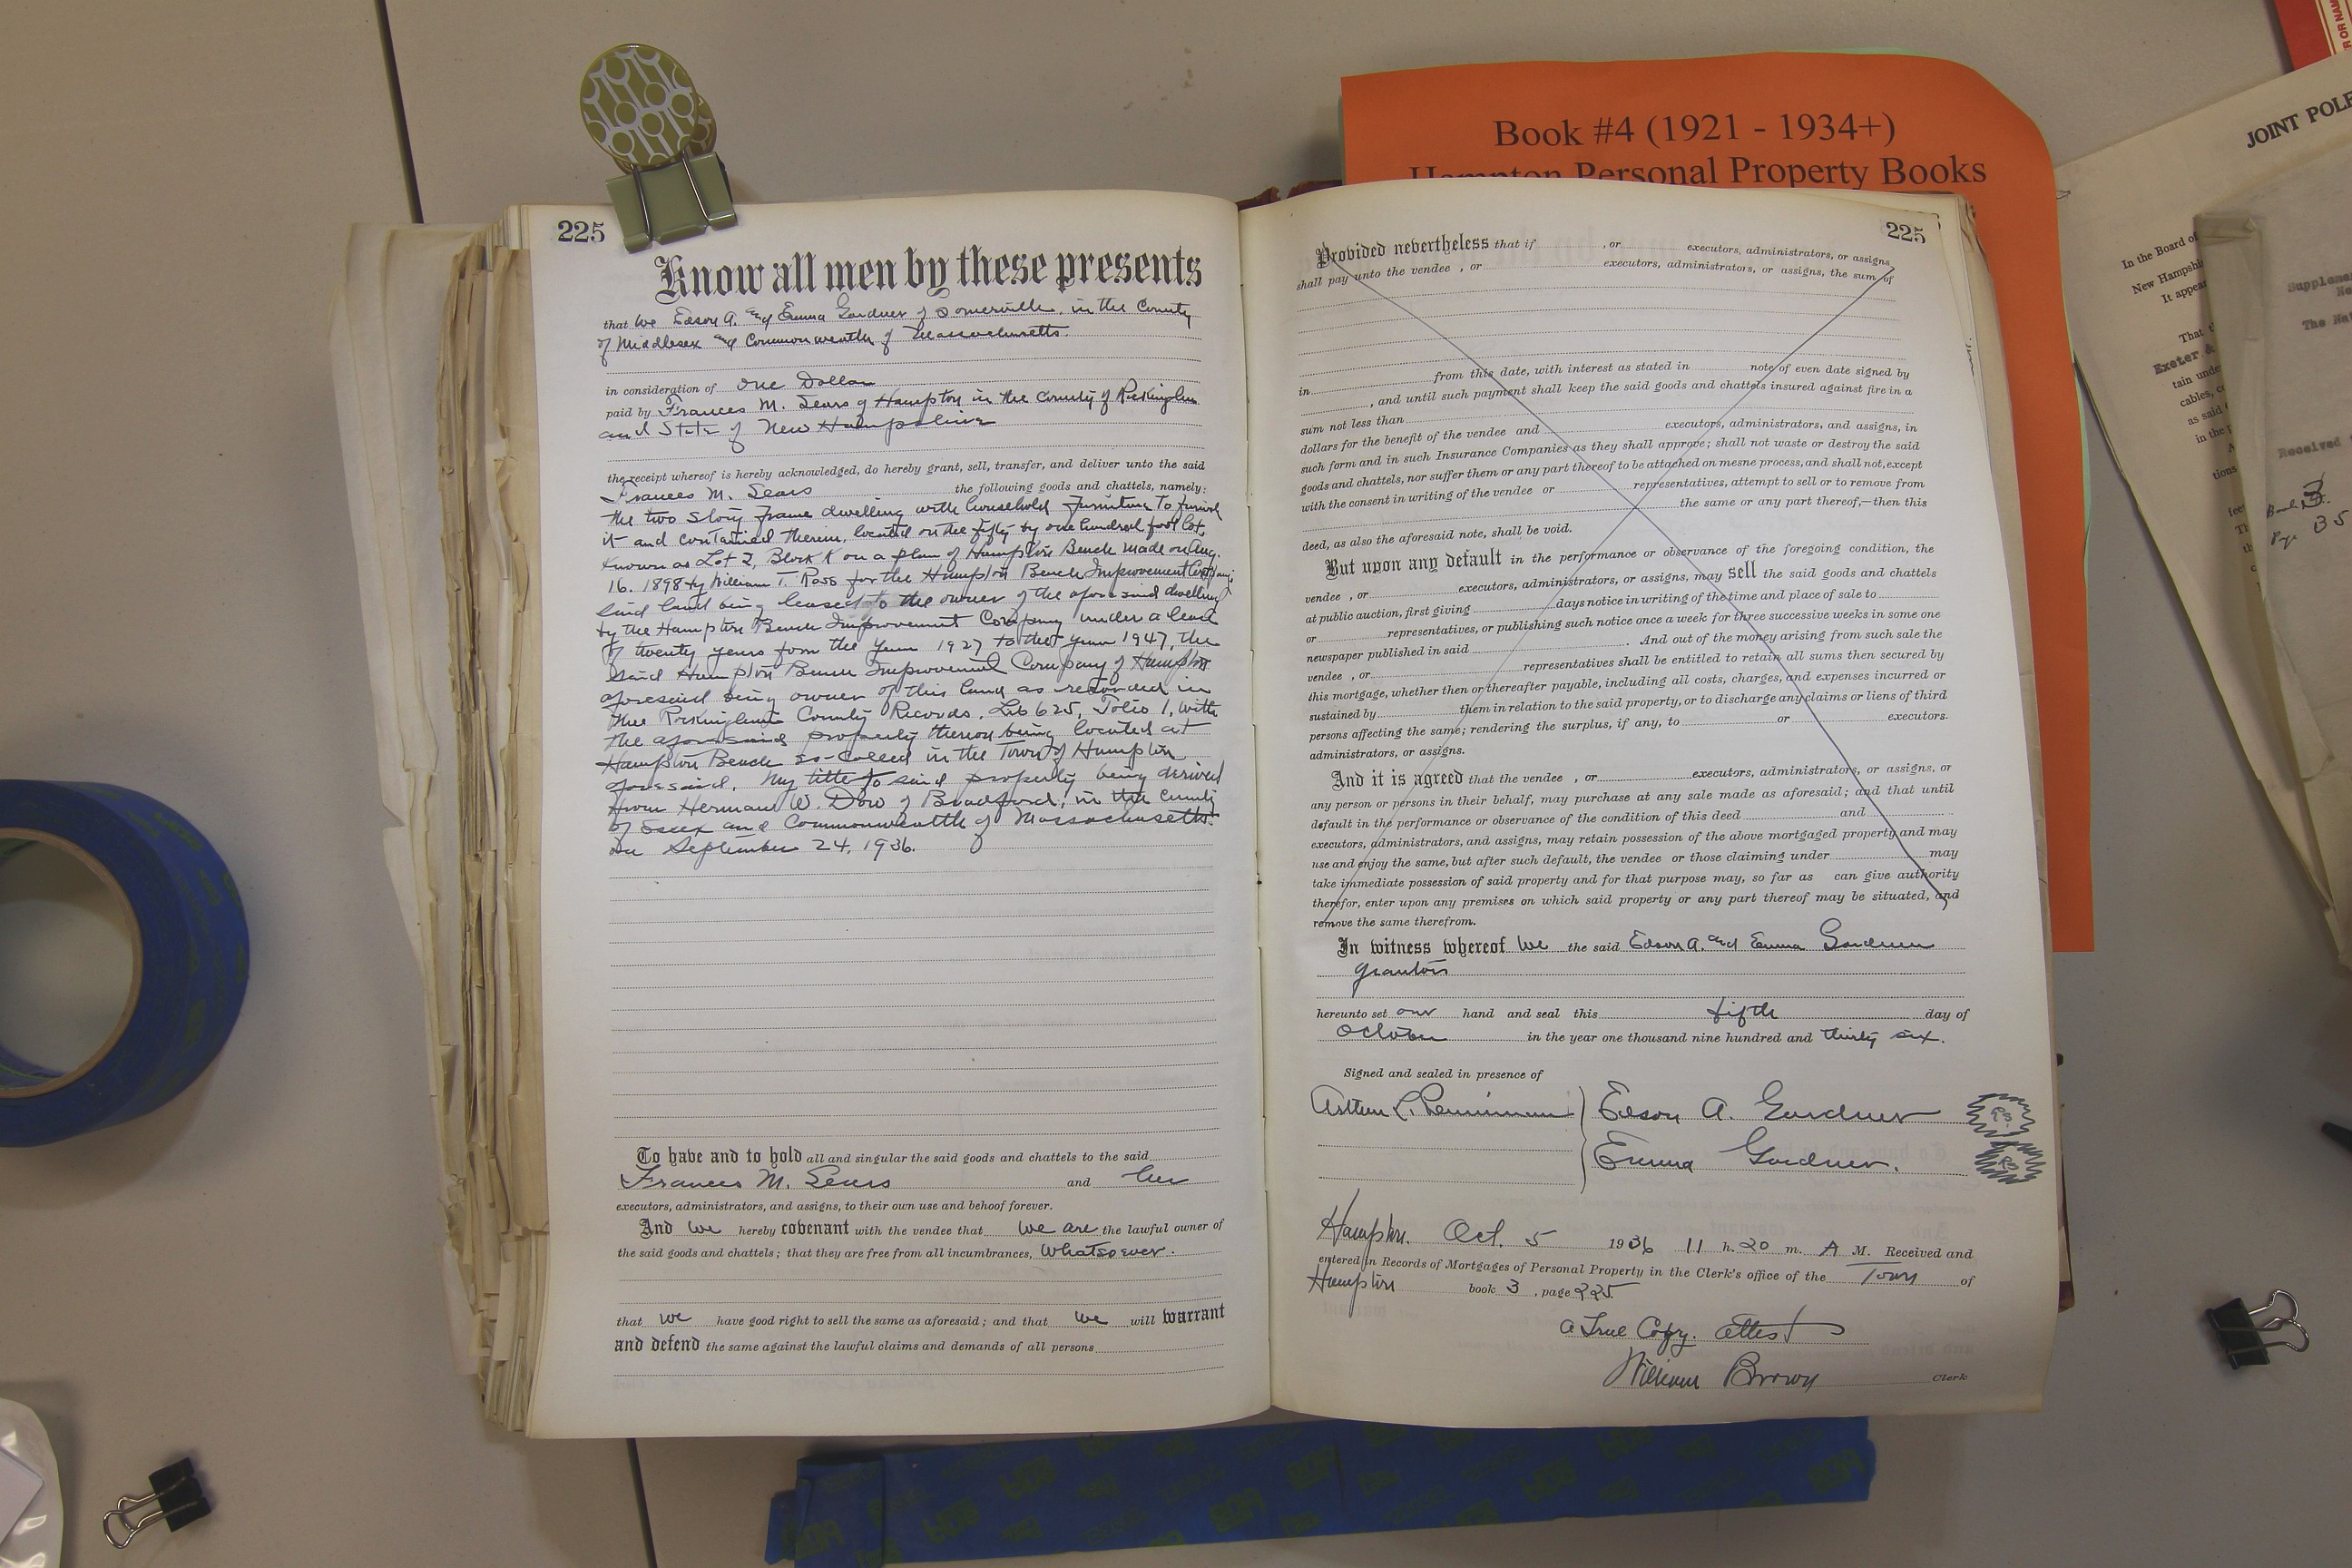 Book #4 (1921 - 1934+)
Hampton Personal Property Books
225
Know all men by these presents
that We Edson A. and Emma Gardner of Somerville, in the County
of Middlesex and Commonwealth of Massachusetts.
in consideration of One Dollar
paid by Frances M. Sears of Hampton in the County of Rockingham
and State of New Hampshire
the receipt whereof is hereby acknowledged, do hereby grant, sell, transfer, and deliver unto the said
Frances M. Sears the following goods and chattels, namely:
the two story frame dwelling with household furniture to furnish
it and contained therein, located on the fifty by one hundred foot lot,
known as Lot 2, Block K on a plan of Hampton Beach made on Aug.
16. 1898 by William T. Ross for the Hampton Beach Improvement Company;
said land being leased to the owner of the aforesaid dwelling
by the Hampton Beach Improvement Company under a lease
of twenty years from the Year 1927 to the Year 1947, the
said Hampton Beach Improvement Company of Hampton
aforesaid being owner of this land as recorded in
the Rockingham County Records, Lib 625, Folio 1, with
the aforesaid property thereon being located at
Hampton Beach so-called in the Town of Hampton
aforesaid. My title to said property being derived
from Herman W. Dow of Bradford, in the County
of Essex and Commonwealth of Massachusetts.
on September 24, 1936.
To have and to hold all and singular the said goods and chattels to the said
Frances M. Sears and her
executors, administrators, and assigns, to their own use and behoof forever.
And we hereby covenant with the vendee that we are the lawful owner of
the said goods and chattels; that they are free from all incumbrances, whatsoever.
that we have good right to sell the same as aforesaid; and that we will warrant
and defend the same against the lawful claims and demands of all persons
225
Provided nevertheless that if , or executors, administrators, or assigns
shall pay unto the vendee , or executors, administrators, or assigns, the sum of
in from this date, with interest as stated in note of even date signed by
, and until such payment shall keep the said goods and chattels insured against fire in a
sum not less than
dollars for the benefit of the vendee and executors, administrators, and assigns, in
such form and in such Insurance Companies as they shall approve; shall not waste or destroy the said
goods and chattels, nor suffer them or any part thereof to be attached on mesne process, and shall not, except
with the consent in writing of the vendee or representatives, attempt to sell or to remove from
the same or any part thereof,—then this
deed, as also the aforesaid note, shall be void.
But upon any default in the performance or observance of the foregoing condition, the
vendee , or executors, administrators, or assigns, may sell the said goods and chattels
at public auction, first giving days notice in writing of the time and place of sale to
or representatives, or publishing such notice once a week for three successive weeks in some one
newspaper published in said . And out of the money arising from such sale the
vendee , or representatives shall be entitled to retain all sums then secured by
this mortgage, whether then or thereafter payable, including all costs, charges, and expenses incurred or
sustained by them in relation to the said property, or to discharge any claims or liens of third
persons affecting the same; rendering the surplus, if any, to or executors.
administrators, or assigns.
And it is agreed that the vendee , or executors, administrators, or assigns, or
any person or persons in their behalf, may purchase at any sale made as aforesaid; and that until
default in the performance or observance of the condition of this deed and
executors, administrators, and assigns, may retain possession of the above mortgaged property and may
use and enjoy the same, but after such default, the vendee or those claiming under may
take immediate possession of said property and for that purpose may, so far as can give authority
therefor, enter upon any premises on which said property or any part thereof may be situated, and
remove the same therefrom.
In witness whereof We the said Edson A. and Emma Gardner
grantors
hereunto set our hand and seal this fifth day of
October in the year one thousand nine hundred and thirty six.
Signed and sealed in presence of
Arthur L. Edson A. Gardner
Emma Gardner.
Hampton. Oct. 5 1936 11 h. 20 m. A M. Received and
entered in Records of Mortgages of Personal Property in the Clerk's office of the Town of
Hampton book 3 , page 225.
A True Copy. Attest
William Brown Clerk
JOINT POLE
In the Board of
New Hampshi
It appear
That t
Exeter &
tain unde
cables, c
as said
in the p
tions
Supplemen
The Nat
Received